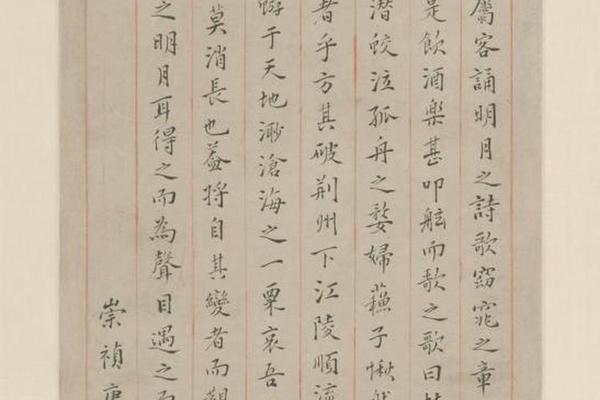 屬客誦明月之詩歌窈窕之章
是飲酒樂甚叩舷而歌之歌曰
潛蛟泣孤舟之嫠婦蘇子愀然
者乎方其破荊州下江陵順流
蝣于天地渺滄海之一粟哀吾
莫消長也葢將自其變者而觀
之明月耳得之而為聲目遇之而
崇禎庚